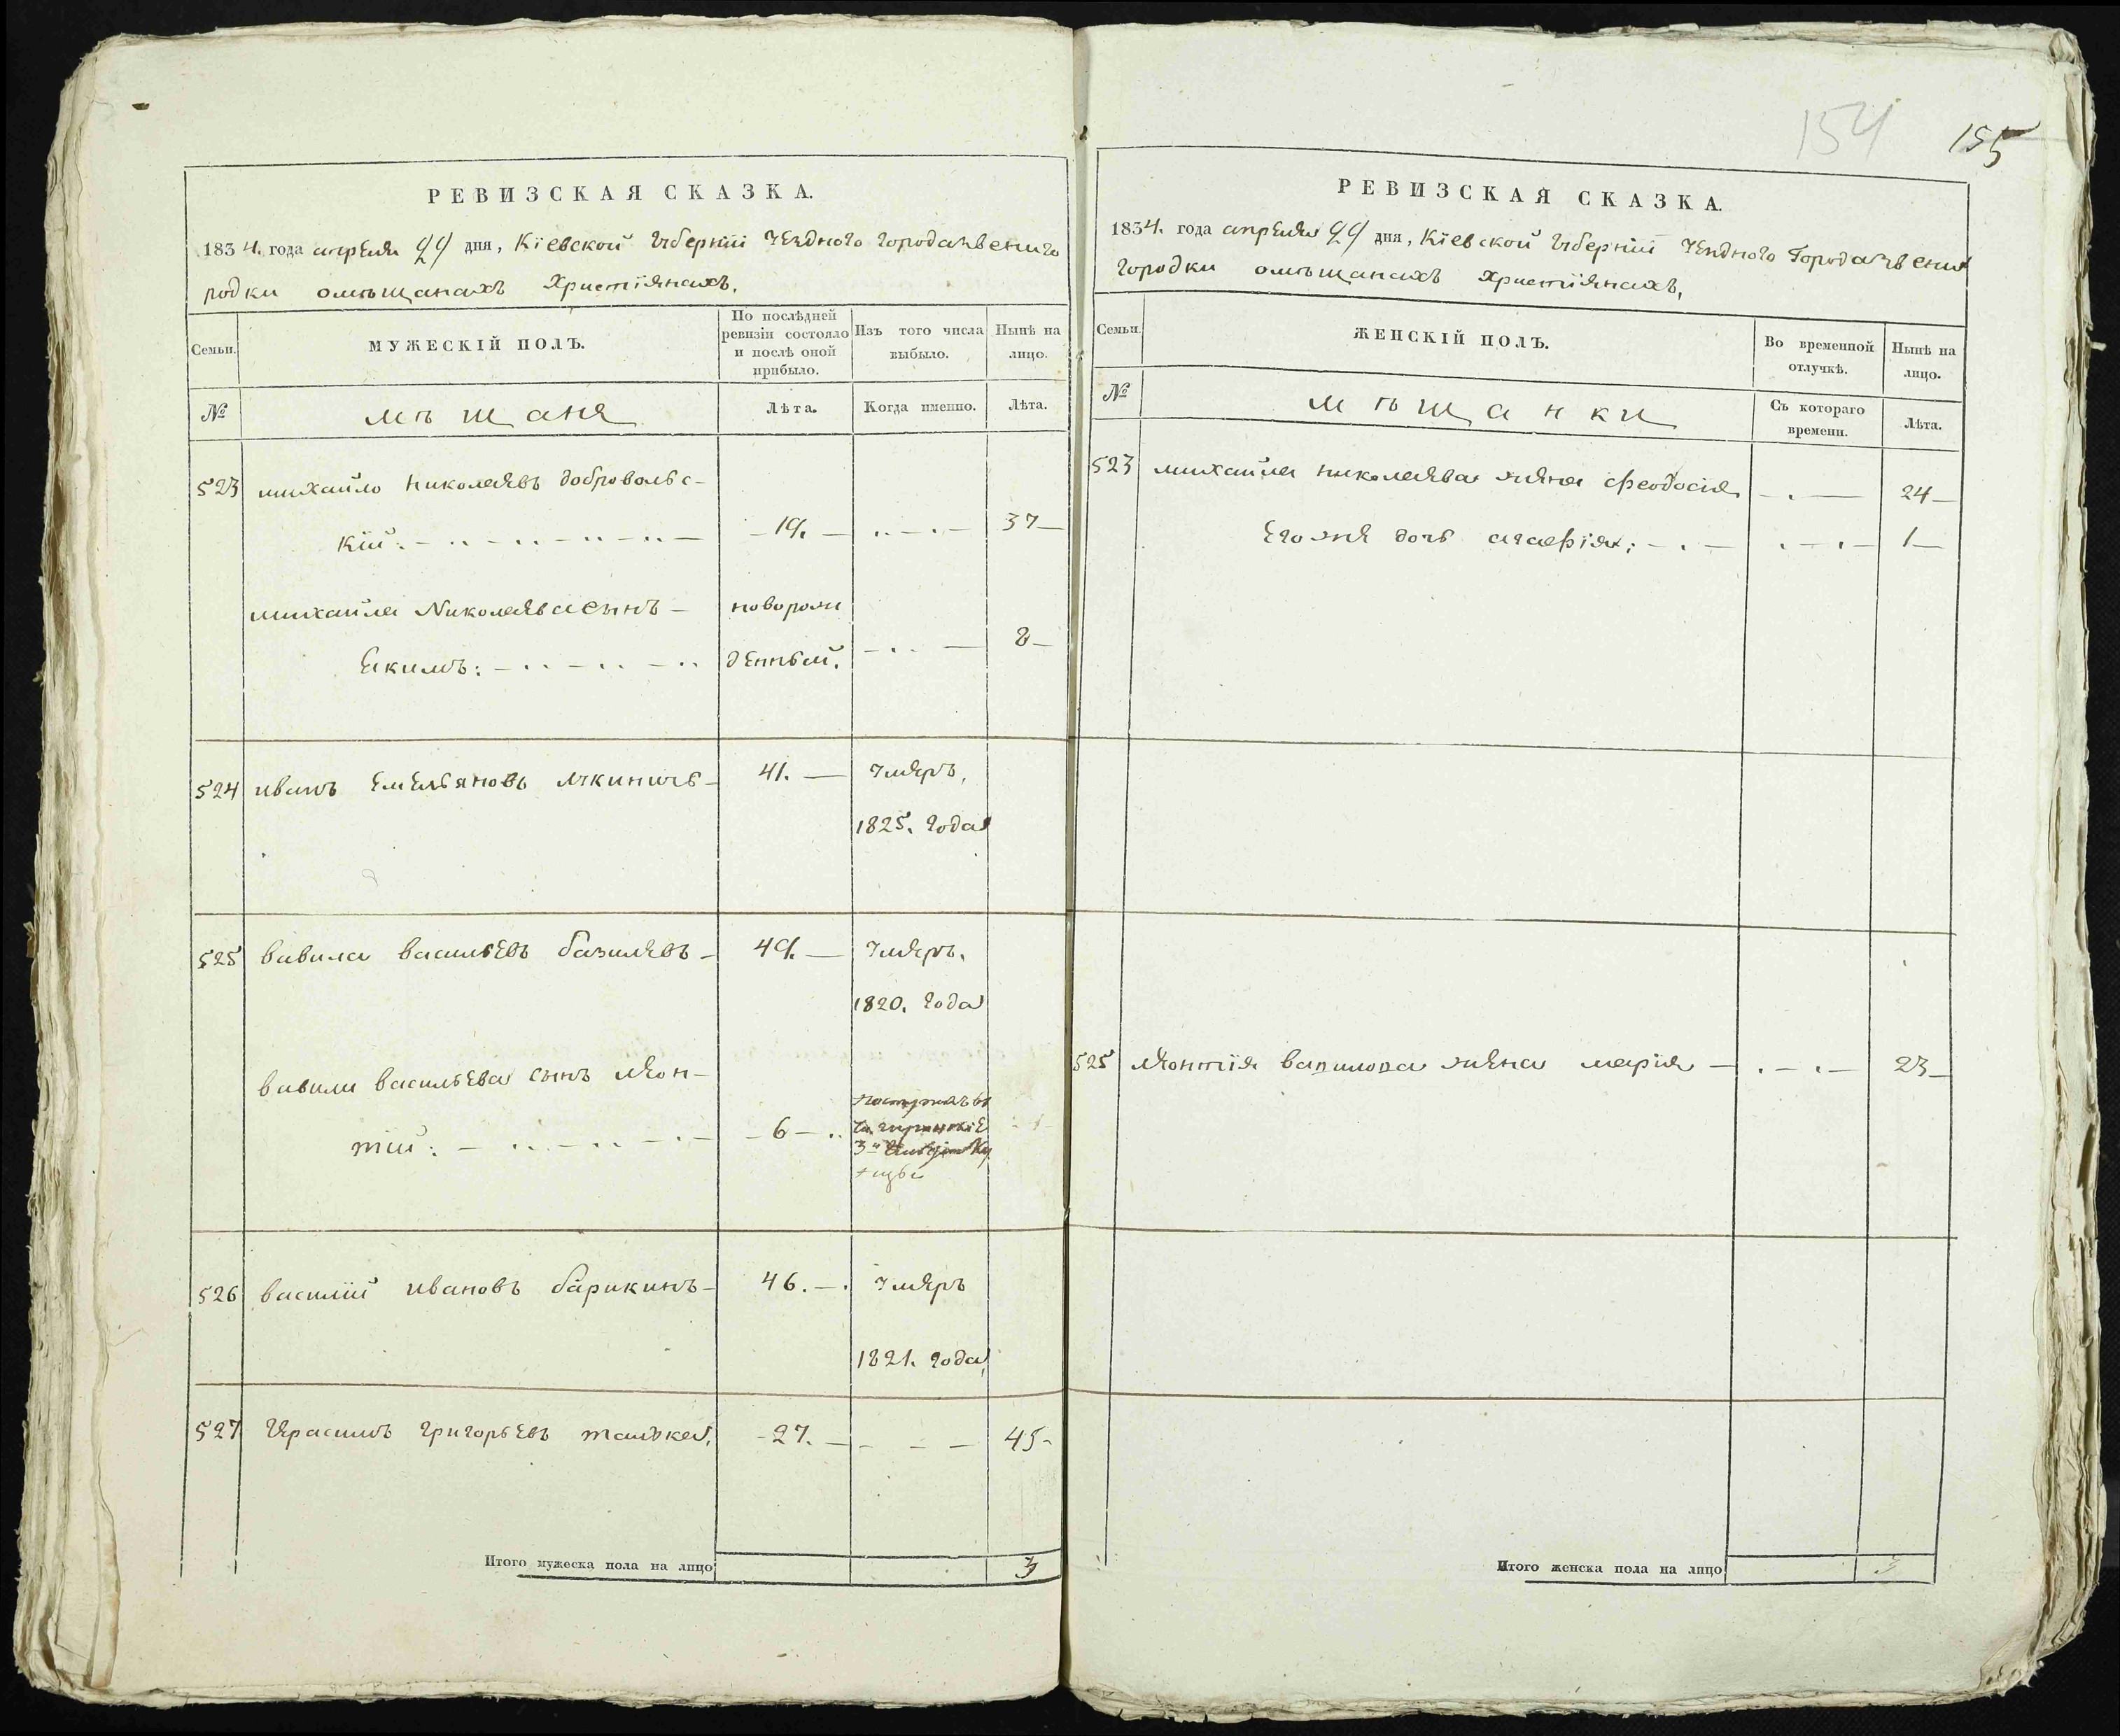 154 155
РЕВИЗСКАЯ СКАЗКА.
1834. года апреля 29 дня, Кіевской Губерніи Уездного Города Звениго
родки омѣщанахъ Христіянахъ.
Семьи.
МУЖЕСКІЙ ПОЛЪ.
По послѣдней
ревизіи состояло
и послѣ оной
прибыло.
Изъ того числа
выбыло.
Нынѣ на
лицо.
№
мѣщане
Лѣта.
Когда именно.
Лѣта.
523 михайло николаевъ добровольс-
кій: 19. 37
михайла Николаева сынъ новорож
Екимъ: денный. 8
524 иванъ Емельяновъ 41. умеръ,
1825. года
525 вавила васильевъ базилевъ 49. умеръ.
1820. года
вавили васильева сынъ леон-
тій: 6
526 василій ивановъ барикинъ 46. умеръ
1821. года
527 Герасимъ григорьевъ 27. 45
Итого мужеска пола на лицо 3
РЕВИЗСКАЯ СКАЗКА.
1834. года апреля 29 дня, Кіевской Губерніи Уездного Города Звени
городки омѣщанахъ Христіянахъ,
Семьи.
ЖЕНСКІЙ ПОЛЪ.
Во временной
отлучкѣ.
Нынѣ на
лицо.
№
мѣщанки
Съ котораго
времени.
Лѣта.
523 михайла николаева жена феодосія 24
Его же дочь агафія; 1
525 леонтія вавилова жена марія 23
Итого женска пола на лицо 3